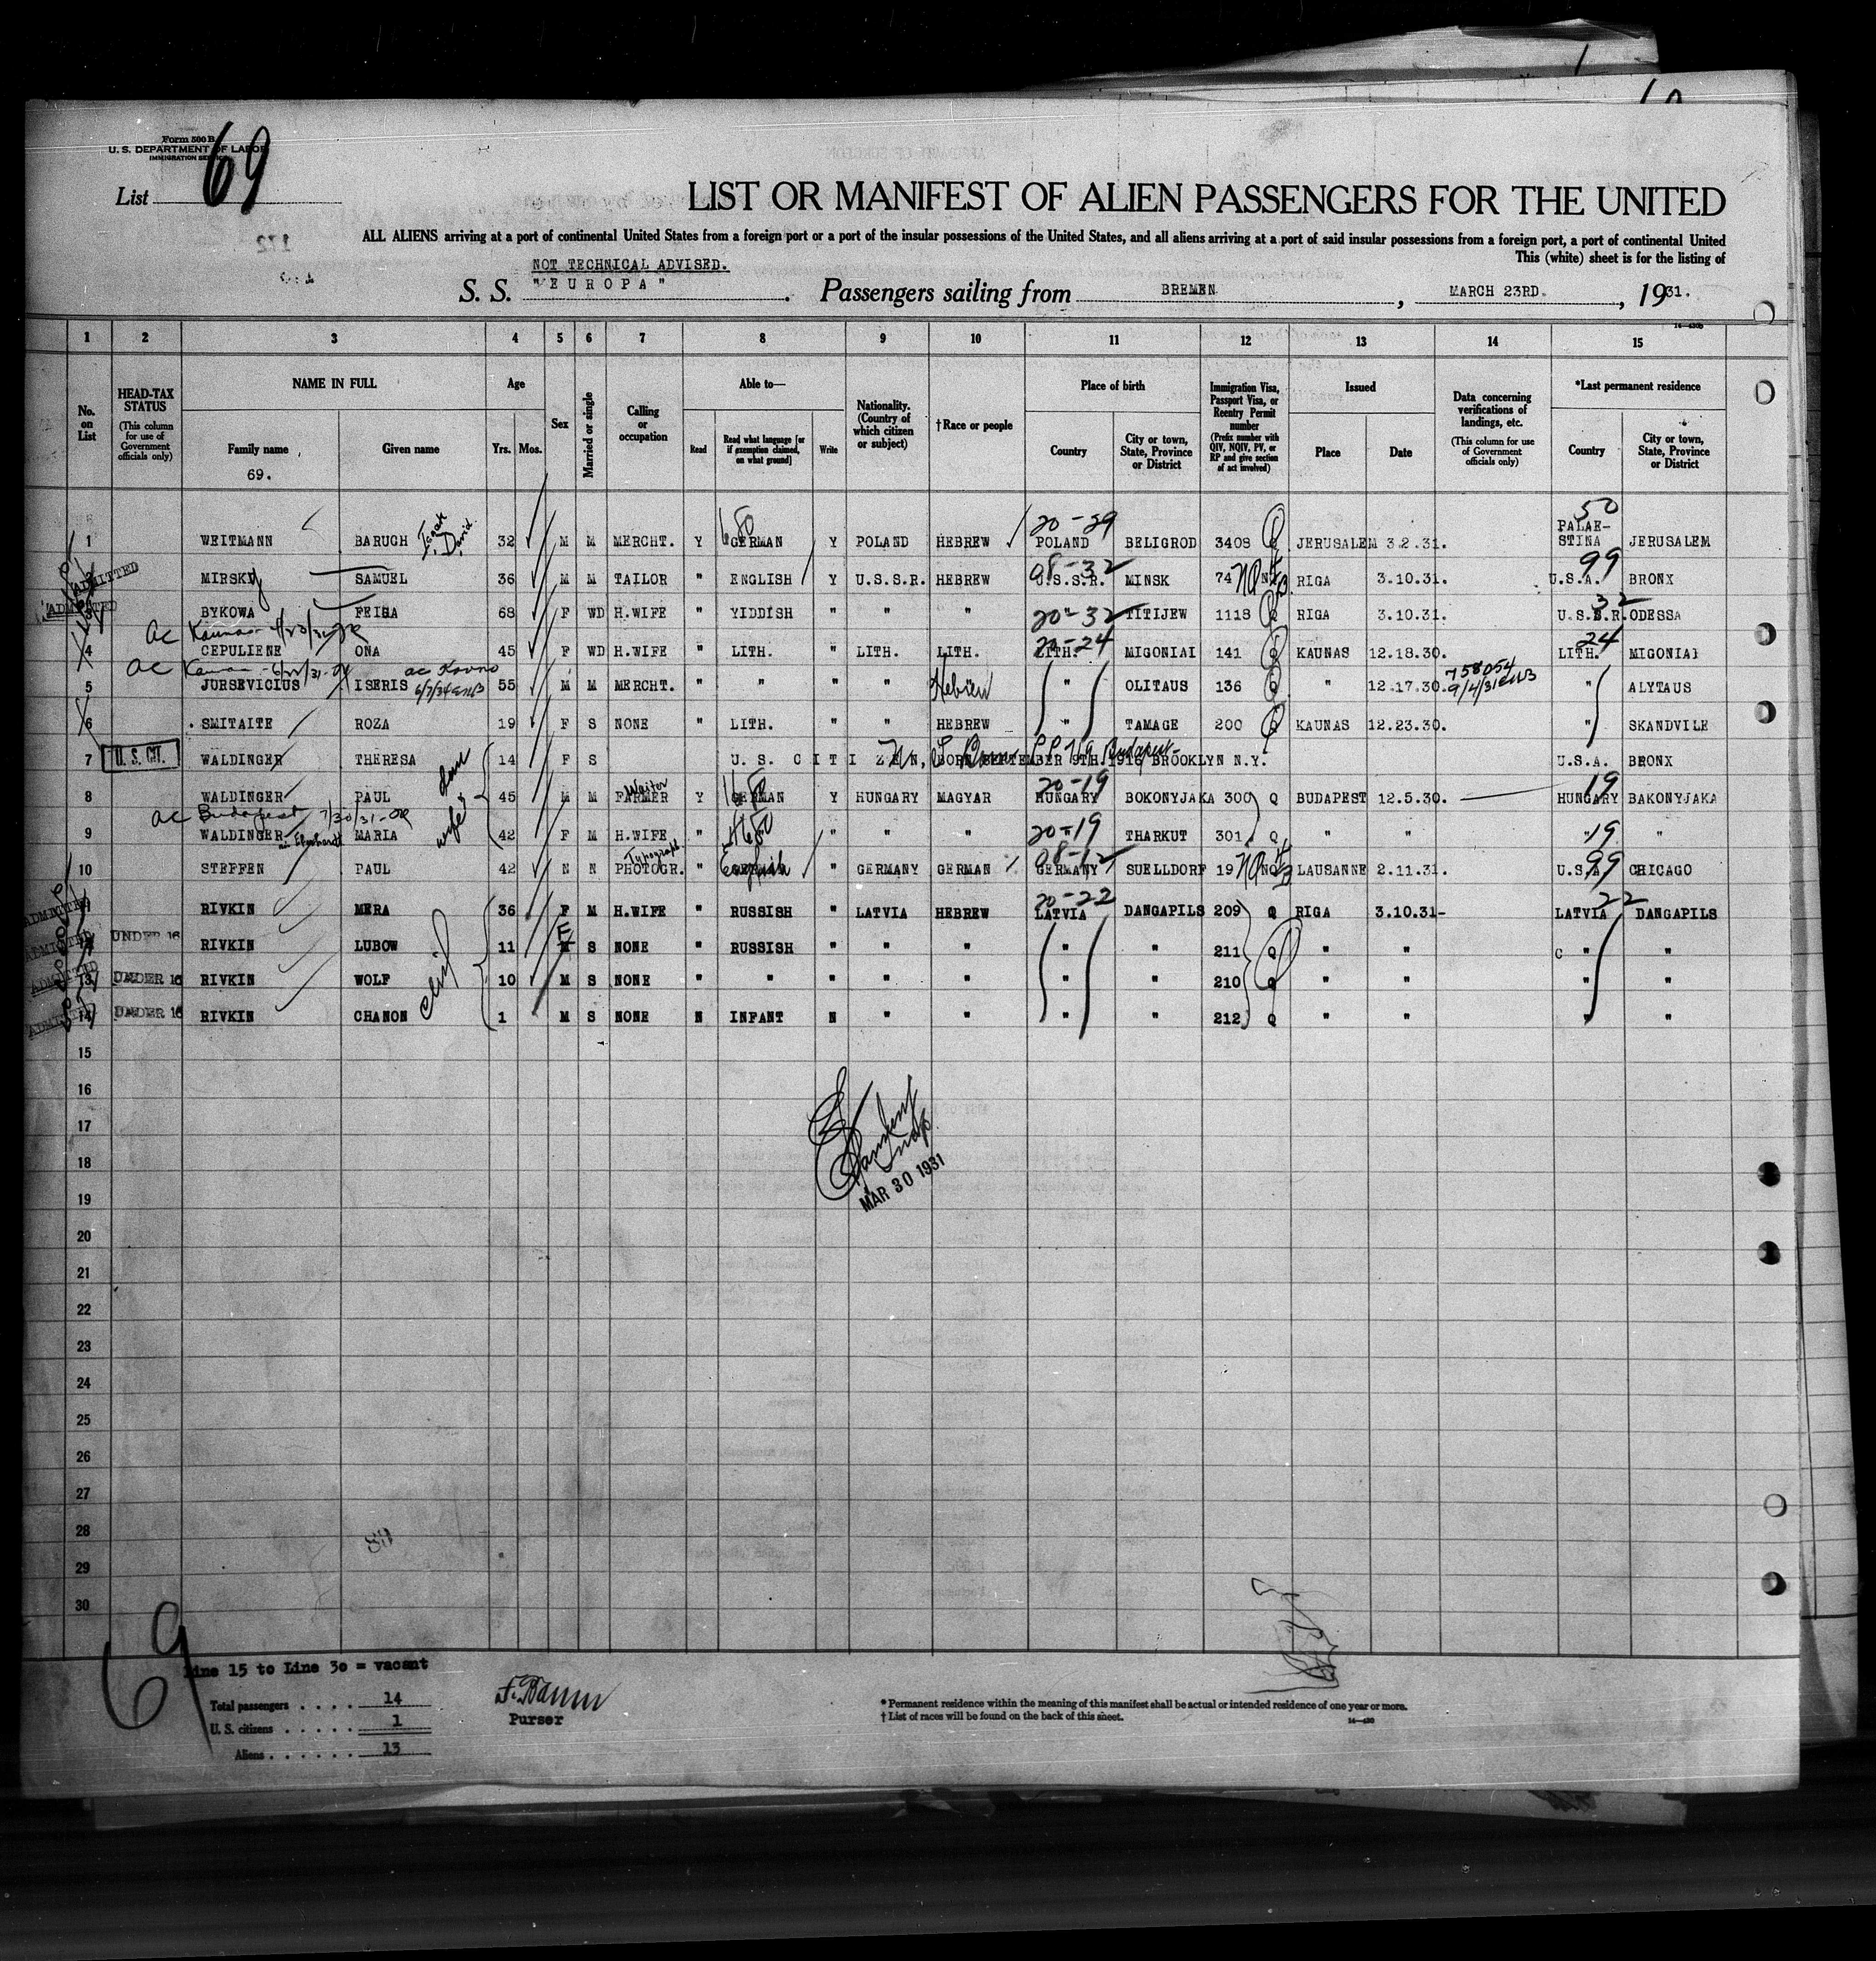 Form 500 B
U. S. DEPARTMENT OF LABOR
IMMIGRATION SERVICE
List 69
LIST OR MANIFEST OF ALIEN PASSENGERS FOR THE UNITED
ALL ALIENS arriving at a port of continental United States from a foreign port or a port of the insular possessions of the United States, and all aliens arriving at a port of said insular possessions from a foreign port, a port of continental United
This (white) sheet is for the listing of
NOT TECHNICAL ADVISED.
S. S. "EUROPA" Passengers sailing from BREMEN, MARCH 23RD., 1931.
1 2 3 4 5 6 7 8 9 10 11 12 13 14 15
No. on List
HEAD-TAX STATUS (This column for use of Government officials only)
NAME IN FULL
Family name Given name
69.
Age Yrs. Mos.
Sex
Married or single
Calling or occupation
Able to—
Read Read what language [or if exemption claimed, on what ground] Write
Nationality. (Country of which citizen or subject)
†Race or people
Place of birth
Country City or town, State, Province or District
Immigration Visa, Passport Visa, or Reentry Permit number (Prefix number with QIV, NQIV, PV, or RP and give section of act involved)
Issued
Place Date
Data concerning verifications of landings, etc. (This column for use of Government officials only)
*Last permanent residence
Country City or town, State, Province or District
20-29 50
1 WEITMANN BARUGH David 32 M M MERCHT. Y GERMAN Y POLAND HEBREW POLAND BELIGROD 3408 Q JERUSALEM 3.2.31. PALAE-STINA JERUSALEM
ADMITTED 08-32 99
2 MIRSKY SAMUEL 36 M M TAILOR " ENGLISH Y U.S.S.R. HEBREW U.S.S.R. MINSK 74 RIGA 3.10.31. U.S.A. BRONX
ADMITTED 20-32 32
3 BYKOWA FEIGA 68 F WD H.WIFE " YIDDISH " " " " TITIJEW 1118 Q RIGA 3.10.31. U.S.S.R. ODESSA
ac Kaunas - 4/23/31 20-24 24
4 CEPULIENE ONA 45 F WD H.WIFE " LITH. " LITH. LITH. LITH. MIGONIAI 141 Q KAUNAS 12.18.30. LITH. MIGONIAI
ac ac Kovno 758054
5 JURSEVICIUS ISERIS 55 M M MERCHT. " " " " Hebrew " OLITAUS 136 Q " 12.17.30. " ALYTAUS
6 SMITAITE ROZA 19 F S NONE " LITH. " " HEBREW " TAMAGE 200 Q KAUNAS 12.23.30. " SKANDVILE
7 U. S. CIT. WALDINGER THERESA 14 F S U.S. CITIZEN, BORN SEPTEMBER 9TH.1916 BROOKLYN N.Y. U.S.A. BRONX
Waiter 20-19 19
8 WALDINGER PAUL 45 M M FARMER Y GERMAN Y HUNGARY MAGYAR HUNGARY BOKONYJAKA 300 Q BUDAPEST 12.5.30. HUNGARY BAKONYJAKA
ac Budapest 7/30/31 wife 20-19 19
9 WALDINGER MARIA 42 F M H.WIFE " " " " " THARKUT 301 Q " " " "
Typograph 08-12 99
10 STEFFEN PAUL 42 N N PHOTOGR. " English " GERMANY GERMAN GERMANY SUELLDORF 19 LAUSANNE 2.11.31. U.S.A. CHICAGO
ADMITTED 20-22 22
11 RIVKIN MERA 36 F M H.WIFE " RUSSISH " LATVIA HEBREW LATVIA DANGAPILS 209 Q RIGA 3.10.31- LATVIA DANGAPILS
ADMITTED 12 UNDER 16 RIVKIN LUBOW 11 F S NONE " RUSSISH " " " " " 211 Q " " C " "
ADMITTED 13 UNDER 16 RIVKIN WOLF 10 M S NONE " " " " " " " 210 Q " " " "
ADMITTED 14 UNDER 16 RIVKIN CHANON 1 M S NONE N INFANT N " " " " 212 Q " " " "
15
16
17
18
MAR 30 1931
19
20
21
22
23
24
25
26
27
28
29
30
69
Line 15 to Line 30 = vacant
Total passengers . . . . 14
U. S. citizens . . . . . 1
Aliens . . . . . . 13
Purser
* Permanent residence within the meaning of this manifest shall be actual or intended residence of one year or more.
† List of races will be found on the back of this sheet.